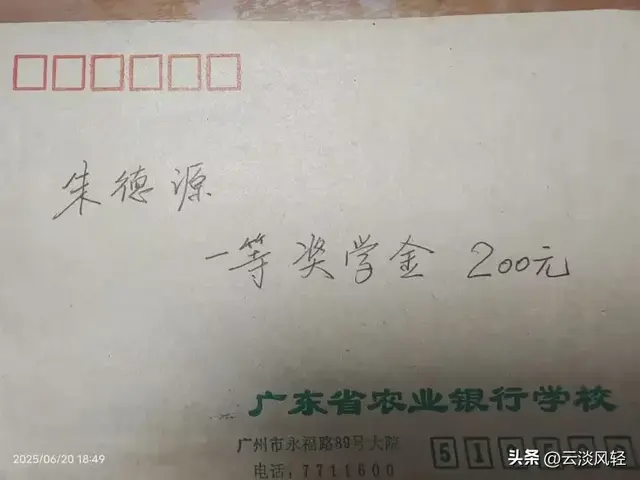 朱德源
一等奖学金 200元
广东省农业银行学校
广州市永福路89号大院
电话:7711600
2025/06/20 18:49
头条 @云淡风轻